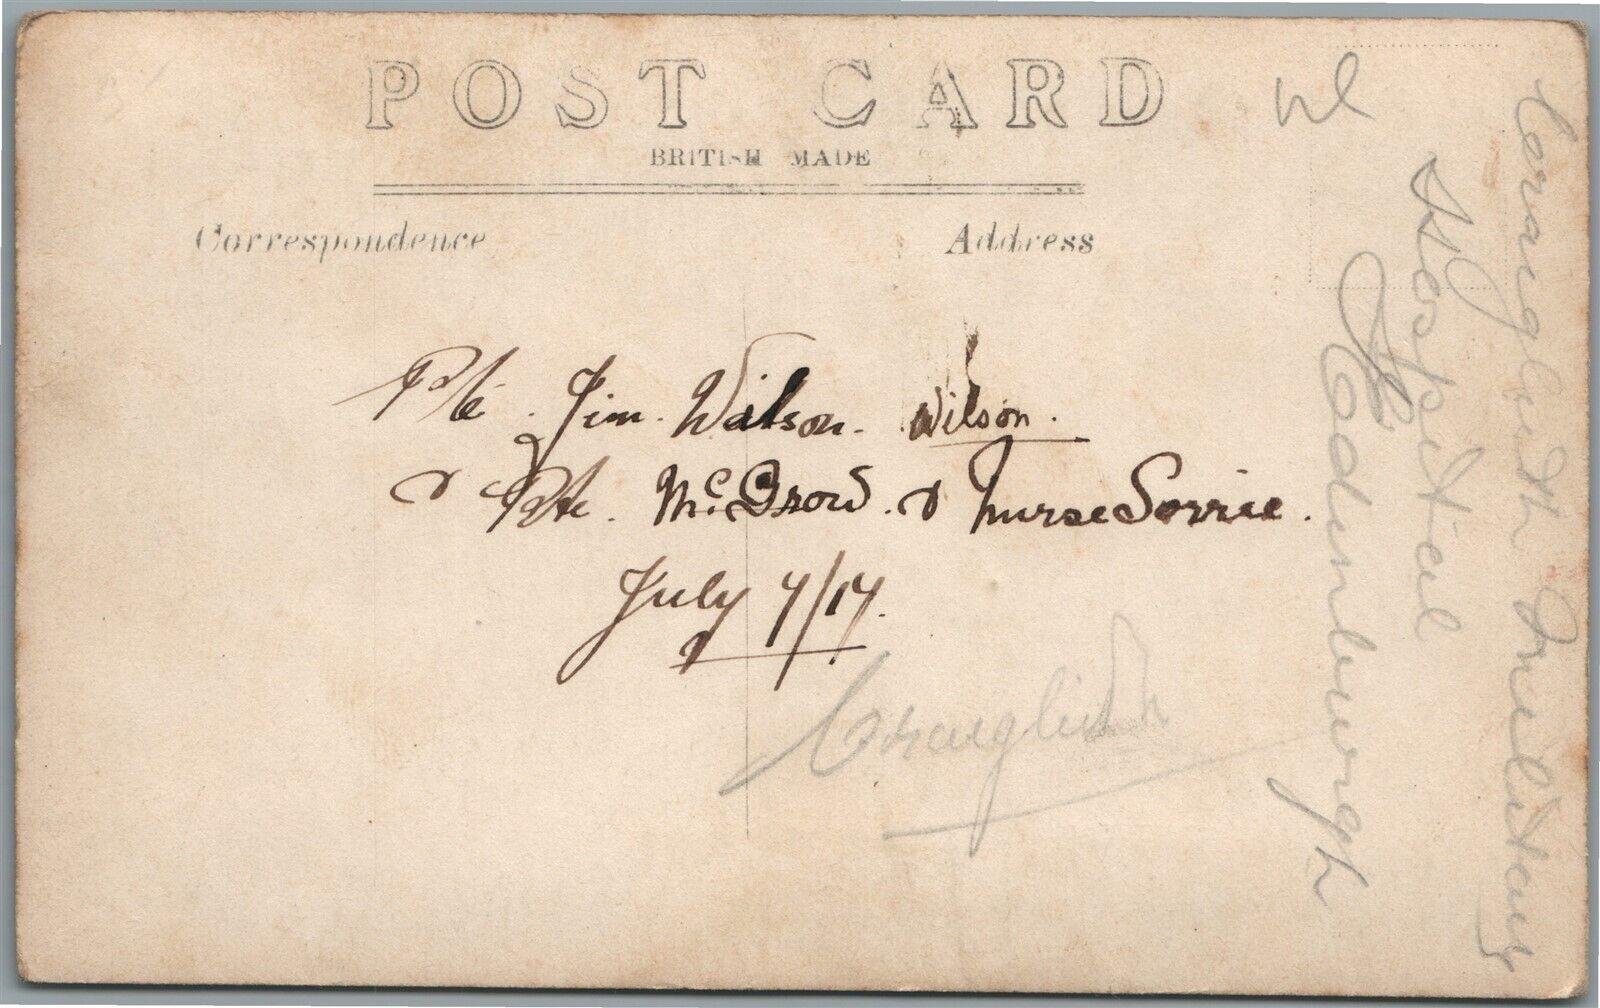 POST CARD
BRITISH MADE
Correspondence
Address
Pte. Jim. Wilson. Wilson.
& Pte. McGrow. & Nurse Sorrie.
July 7/17.
Craiglieth
Craiglieth Military
Hospital
Edinburgh